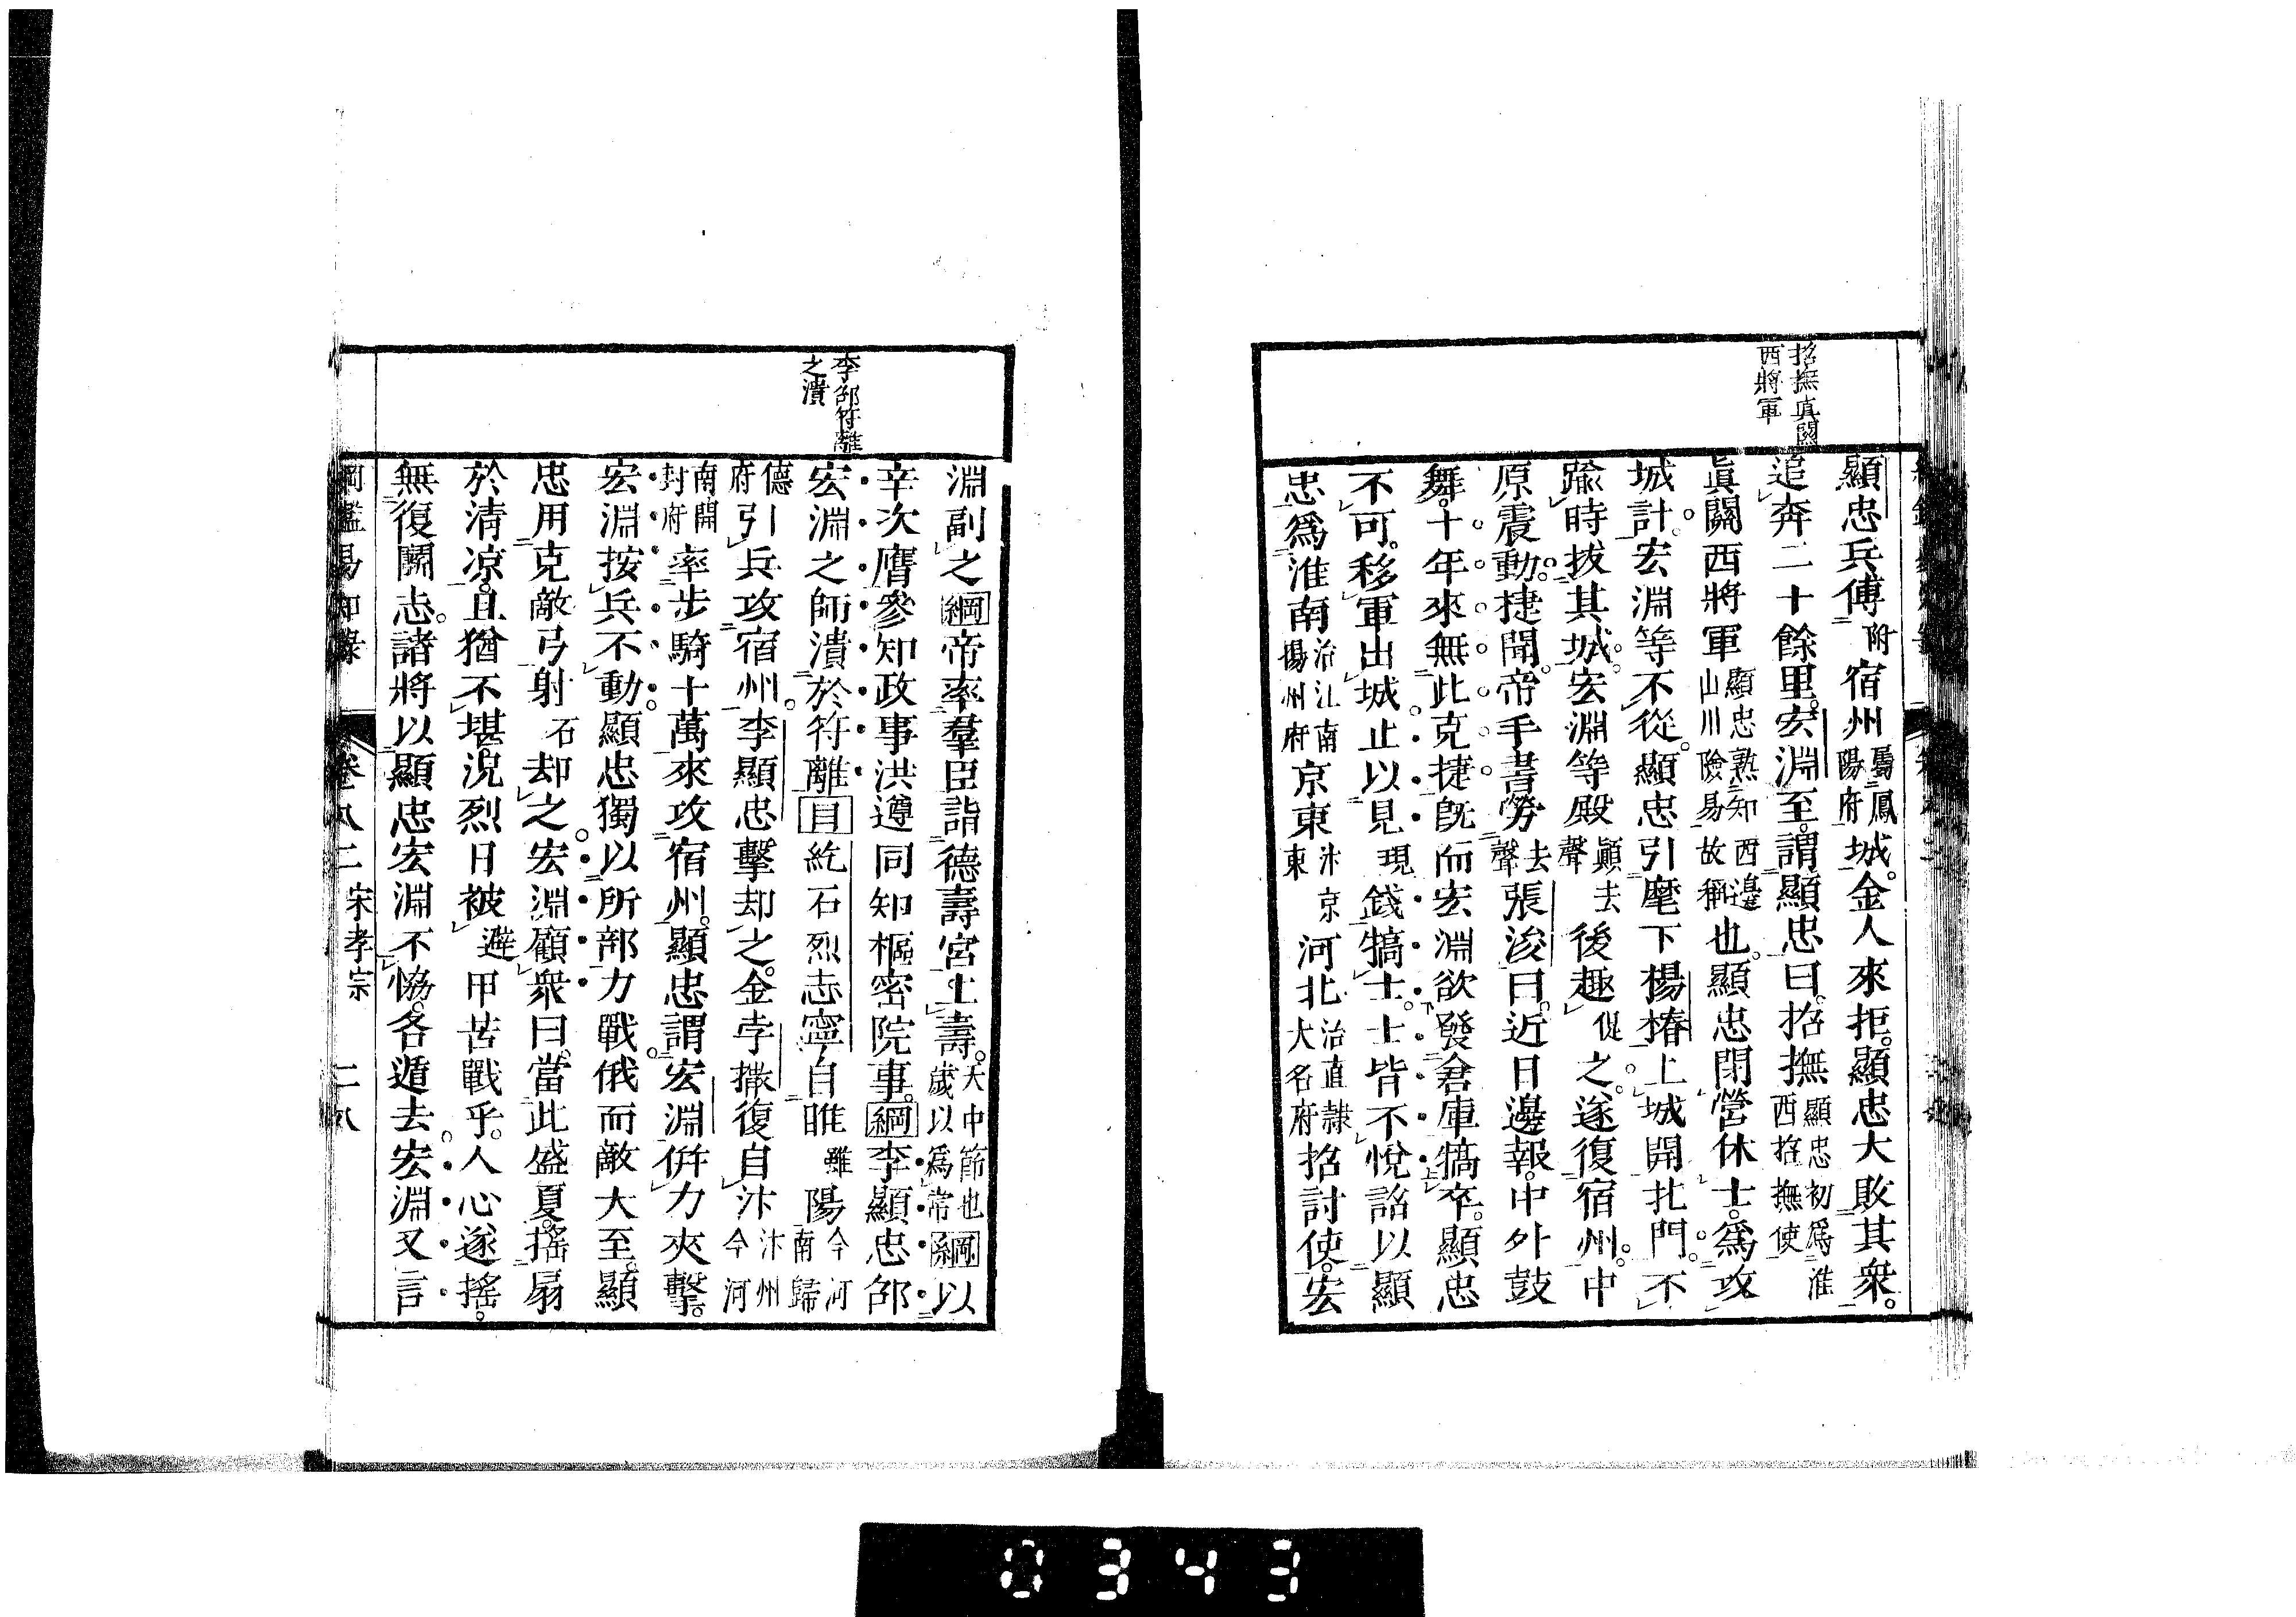 招撫真關
西將軍
顯忠兵傅附宿州屬鳳陽府城。金人來拒。顯忠大敗其衆。
追奔二十餘里。宏淵至。謂顯忠曰。招撫顯忠初爲淮西招撫使
眞關西將軍顯忠熟知西邊山川險易故稱也。顯忠閉營休士。爲攻
城計。宏淵等不從。顯忠引麾下楊椿上城開北門。不
踰時拔其城。宏淵等殿顛去聲後趣促之。遂復宿州。中
原震動。捷聞。帝手書勞去聲張浚曰。近日邊報。中外鼓
舞。十年來無此克捷。旣而宏淵欲發倉庫犒卒。顯忠
不可。移軍出城。止以見現錢犒士。士皆不悅。詔以顯
忠爲淮南治江南揚州府京東汴京東河北治直隸大名府招討使。宏
李邵符離
之潰
淵副之綱帝率羣臣詣德壽宮上壽。天中節也歲以爲常綱以
辛次膺參知政事洪遵同知樞密院事。綱李顯忠邵
宏淵之師潰於符離目紇石烈志寧自睢雖陽今河南歸
德府引兵攻宿州。李顯忠擊却之。金孛撒復自汴汴州今河
南開封府率步騎十萬來攻宿州。顯忠謂宏淵併力夾擊。
宏淵按兵不動。顯忠獨以所部力戰。俄而敵大至。顯
忠用克敵弓射石却之。宏淵顧衆曰。當此盛夏。搖扇
於清凉。且猶不堪。況烈日被避甲苦戰乎。人心遂搖。
無復鬬志。諸將以顯忠宏淵不恊。各遁去。宏淵又言
綱鑑易知錄 卷八二 宋孝宗 二八
0343